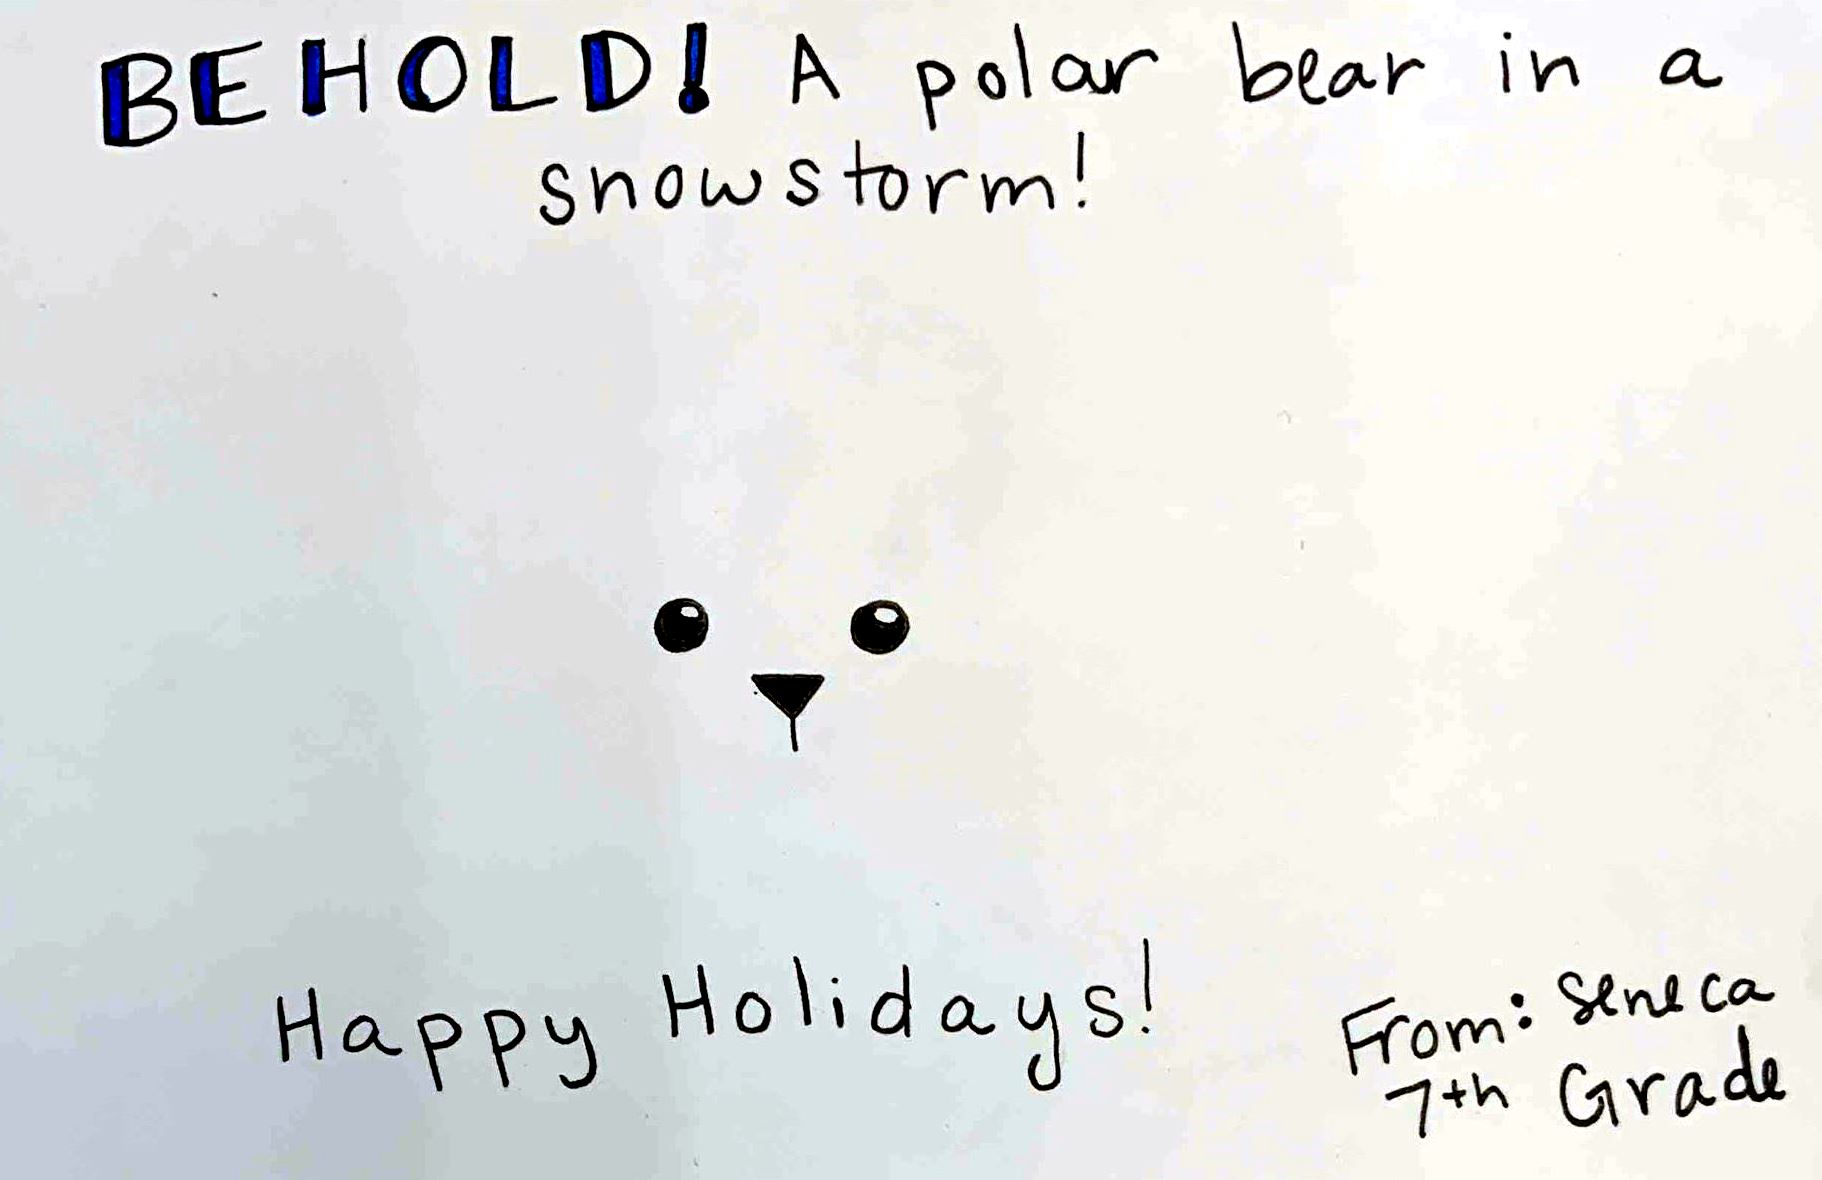 BEHOLD! A polar bear in a
snowstorm!
Happy Holidays!
From: Seneca
7th Grade